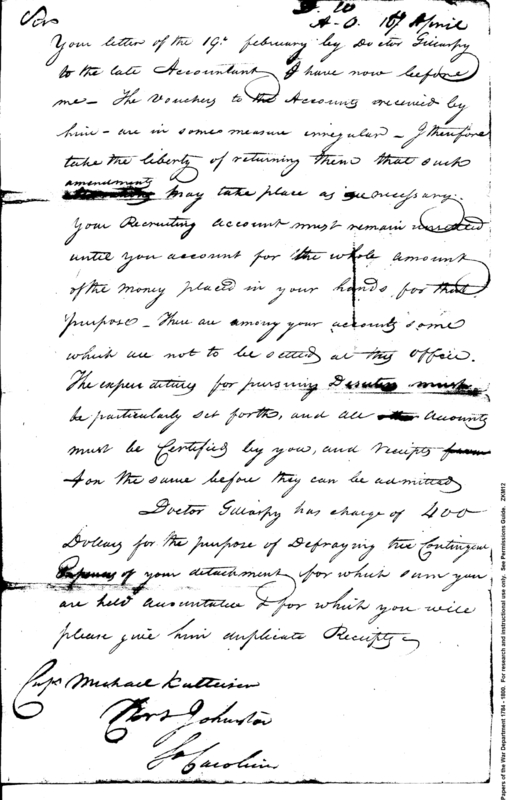 Sir
A. O. 16th April
Your letter of the 19th february by Doctor Gillaspy
to the late Accountant I have now before
me – The Vouchers to the Accounts received by
him – are in some measure irregular – I therefore
take the liberty of returning them that such
amendments may take place as are necessary.
Your Recruiting account must remain unsettled
until you account for the whole amount
of the money placed in your hands for that
purpose – There are among your accounts some
which are not to be settled at this office.
The expenditures for pursuing Deserters must
be particularly set forth, and all accounts
must be Certified by you, and receipts
on the same before they can be admitted
Doctor Gillaspy has charge of 400
Dollars for the purpose of Defraying the Contingent
Expences of your detachment for which sum you
are held accountable & for which you will
please give him duplicate Receipts
Capt Michael Kalteisen
Fort Johnston
So Carolina
Papers of the War Department 1784 - 1800. For research and instructional use only. See Permissions Guide. ZKM12